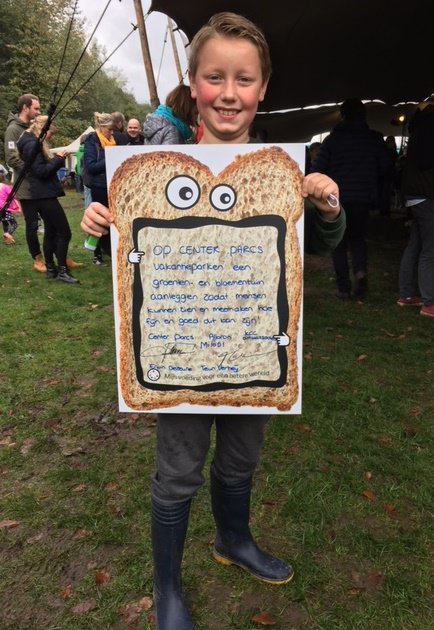 OP CENTER PARCS
vakantieparken een
groenten- en bloementuin
aanleggen zodat mensen
kunnen zien en meemaken hoe
fijn en goed dit kan zijn!
Center Parcs
Mijn voeding voor een betere wereld